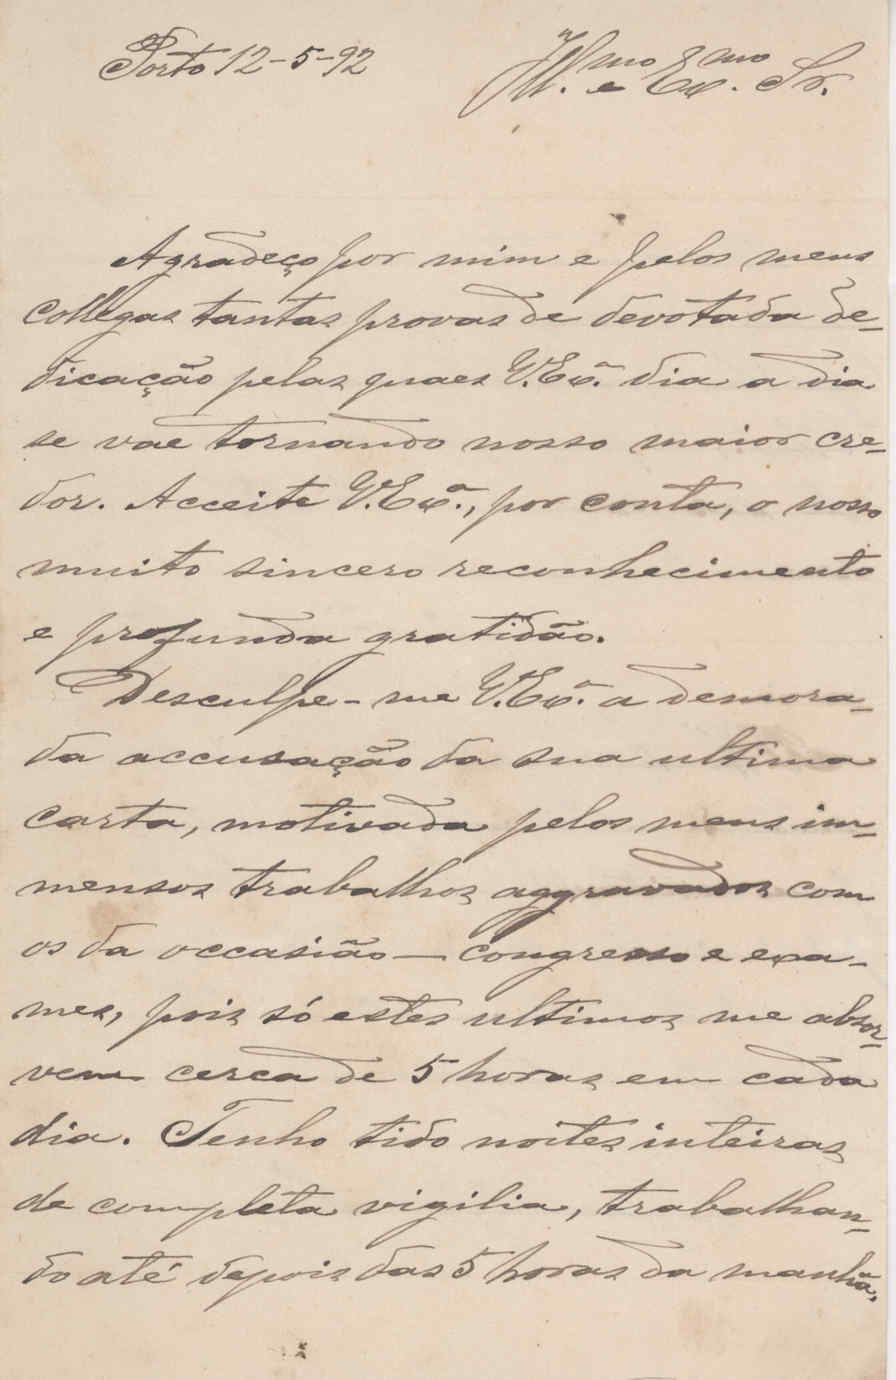 Porto 12-5-92
Ill.mo e Ex.mo Sr.
Agradeço por mim e pelos meus
collegas tantas provas de devotada de-
dicação pelas quaes V.Exª. dia a dia
se vae tornando nosso maior cre-
dor. Acceite V.Exª., por conta, o nosso
muito sincero reconhecimento
e profunda gratidão.
Desculpe-me V.Exª. a demora-
da accusação da sua ultima
carta, motivada pelos meus im-
mensos trabalhos aggravados com
os da occasião — congresso e exa-
mes, pois só estes ultimos me absor-
vem cerca de 5 horas em cada
dia. Tenho tido noites inteiras
de completa vigilia, trabalhan-
do até depois das 5 horas da manhã,